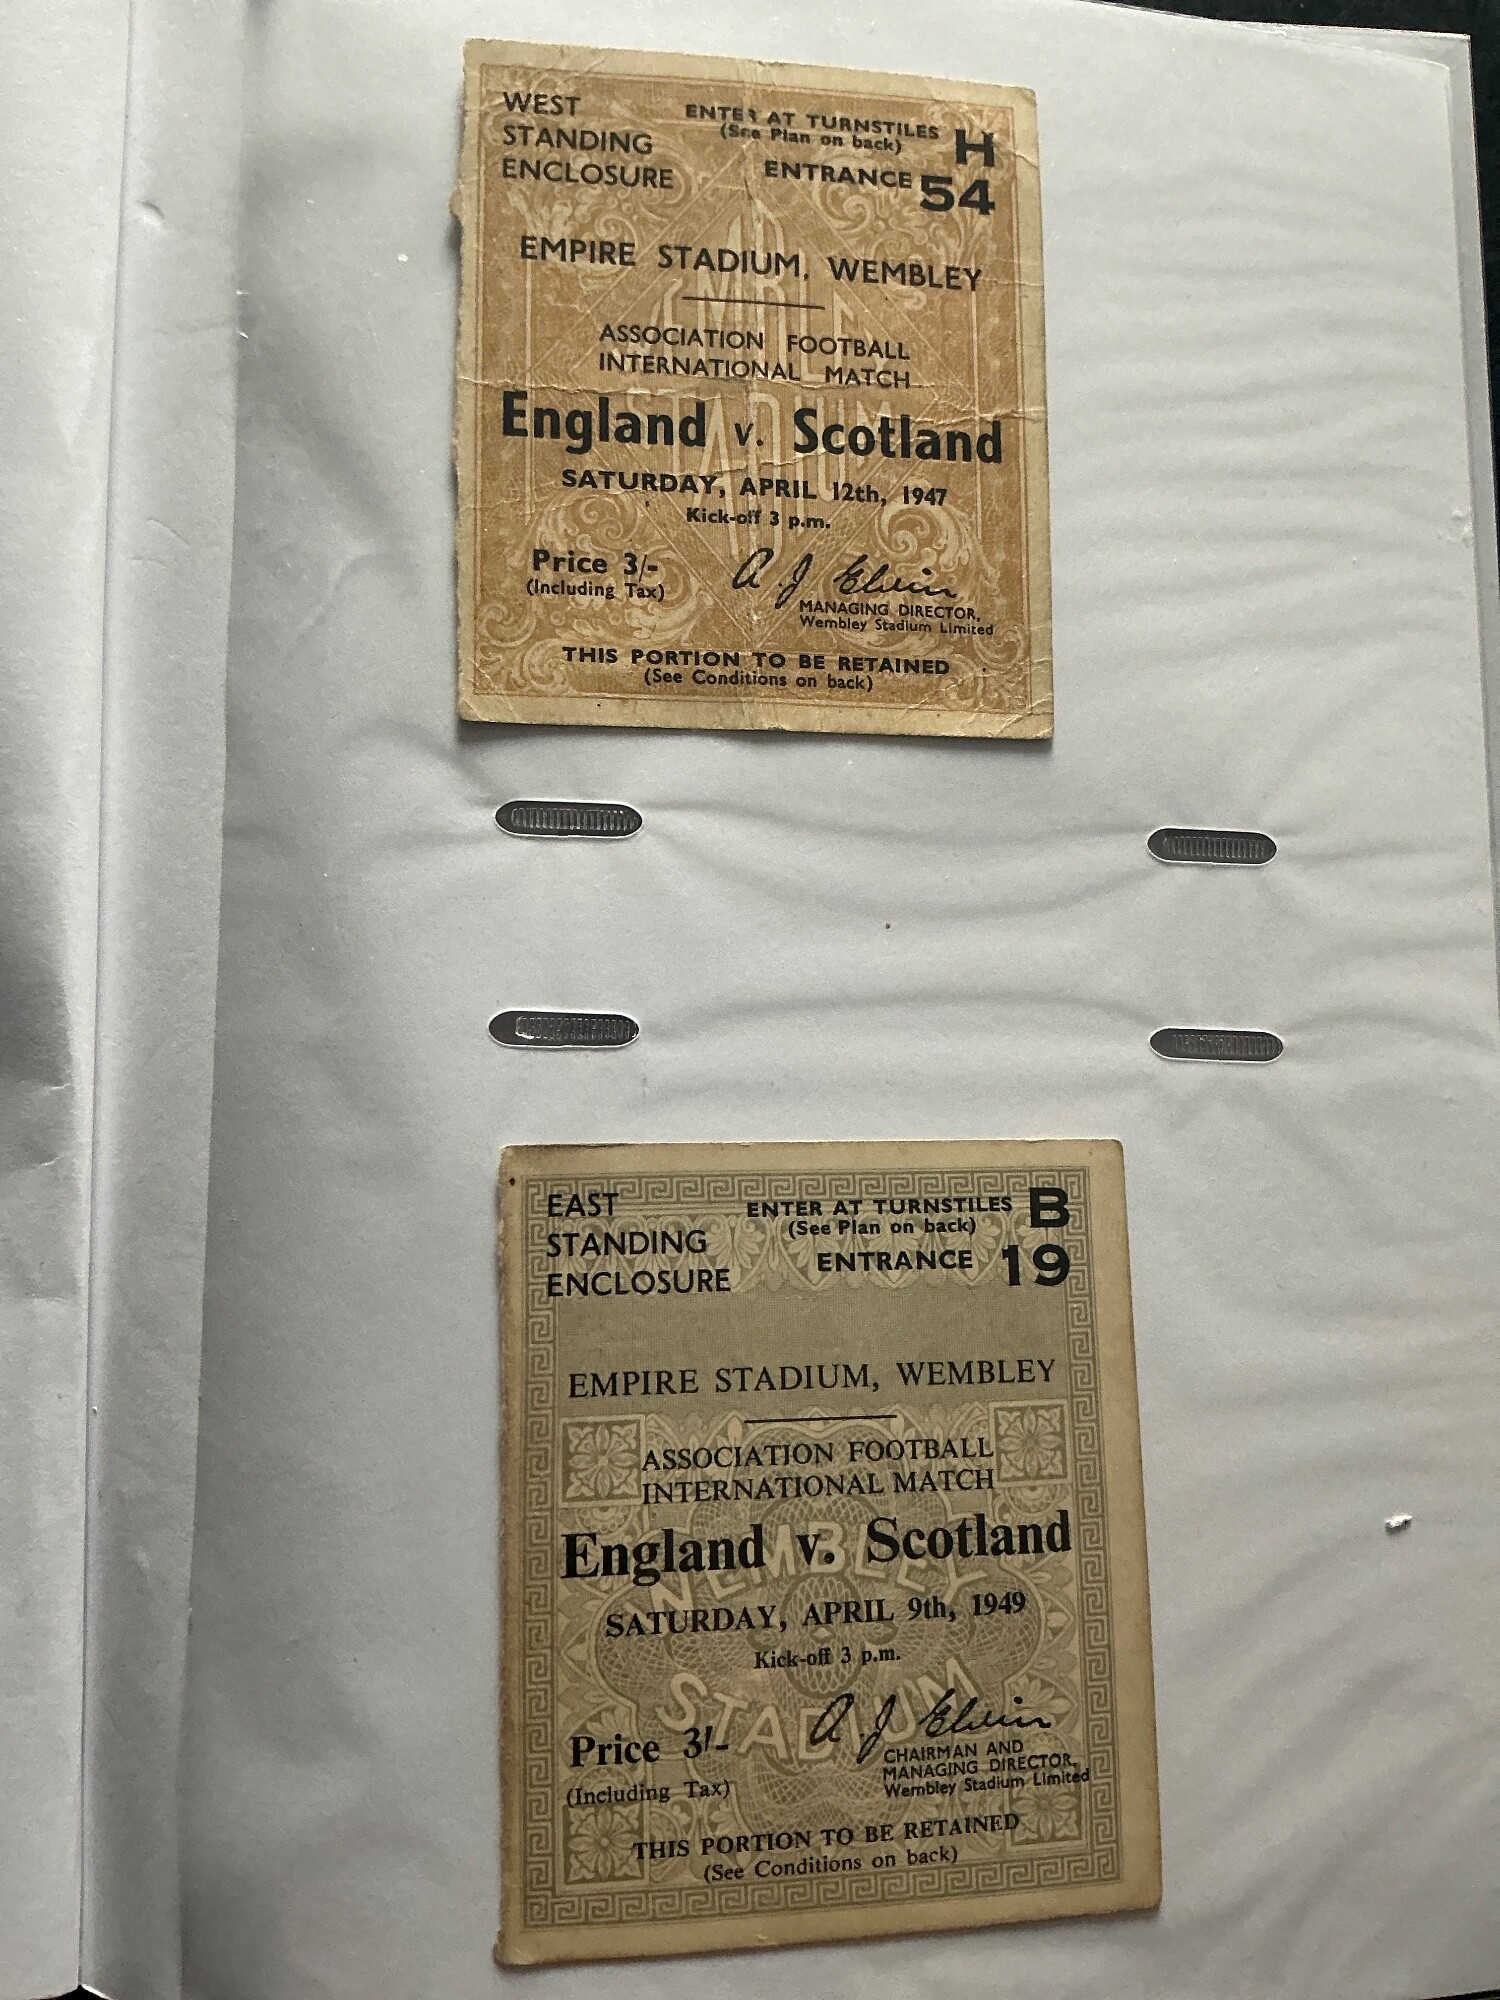 WEST
STANDING
ENCLOSURE
ENTER AT TURNSTILES H
(See Plan on back)
ENTRANCE 54
EMPIRE STADIUM, WEMBLEY
ASSOCIATION FOOTBALL
INTERNATIONAL MATCH
England v. Scotland
SATURDAY, APRIL 12th, 1947
Kick-off 3 p.m.
Price 3/-
(Including Tax)
A. J. Elvin
MANAGING DIRECTOR,
Wembley Stadium Limited
THIS PORTION TO BE RETAINED
(See Conditions on back)
WEMBLEY
STADIUM
EAST
STANDING
ENCLOSURE
ENTER AT TURNSTILES B
(See Plan on back)
ENTRANCE 19
EMPIRE STADIUM, WEMBLEY
ASSOCIATION FOOTBALL
INTERNATIONAL MATCH
England v. Scotland
SATURDAY, APRIL 9th, 1949
Kick-off 3 p.m.
Price 3/-
(Including Tax)
A. J. Elvin
CHAIRMAN AND
MANAGING DIRECTOR,
Wembley Stadium Limited
THIS PORTION TO BE RETAINED
(See Conditions on back)
WEMBLEY
STADIUM